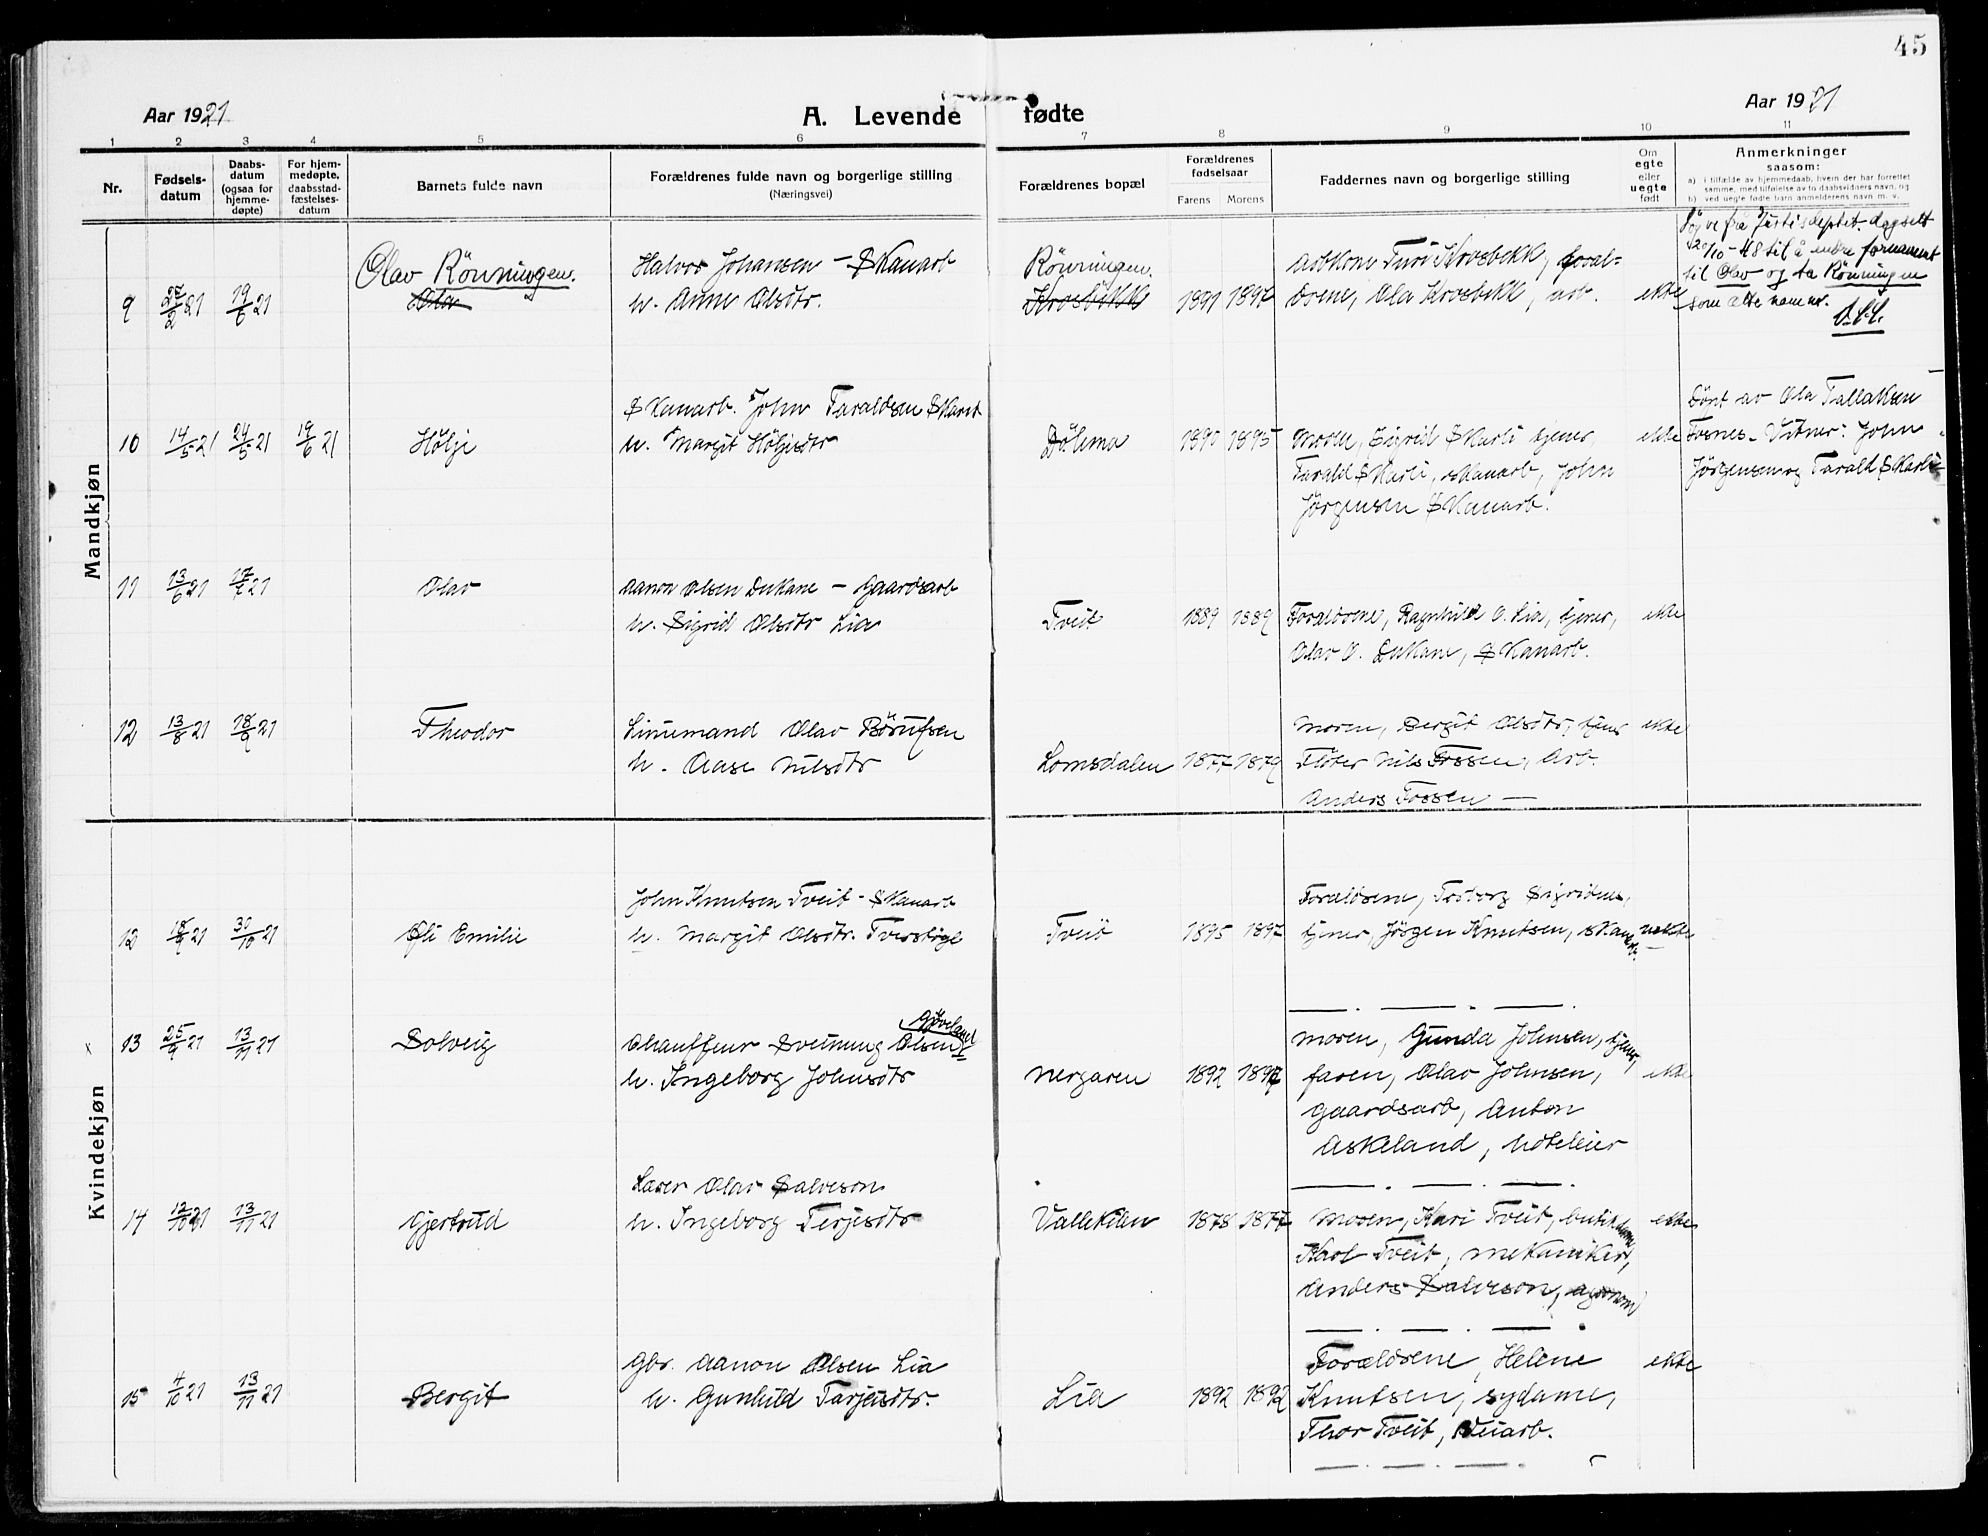 45
Aar 1921
A. Levende fødte
Aar 1921
1 2 3 4 5 6 7 8 9 10 11
Nr.
Fødsels-
datum
Daabs-
datum
(ogsaa for
hjemme-
døpte)
For hjem-
medøpte,
daabsstad-
fæstelses-
datum
Barnets fulde navn
Forældrenes fulde navn og borgerlige stilling
(Næringsvei)
Forældrenes bopæl
Forældrenes
fødselsaar
Farens Morens
Faddernes navn og borgerlige stilling
Om
egte
eller
uegte
født
Anmerkninger
saasom:
a) i tilfælde av hjemmedaab, hvem der har forrettet
samme, med tilføielse av to daabsvidners navn, og
b) ved uegte fødte barn anmelderens navn m. v.
Mandkjøn
9 27/2 21 19/6 21
Olav Rönningen.
Olav
Halvor Johansen - Skauarb
h. Anne Olsdtr.
Rönningen.
Krosbekk
1891 1897
Arbkone Turi Krosbekk, foræl-
drene, Ola Krosbekk, arb.
ekte
Löyve frå Justisdeptet. dagsett
20/10-48 til å endre fornamnet
til Olav og ta Rönningen
som ættenamn.
10 14/5 21 24/5 21 19/6 21
Hølje
Skauarb. John Taraldsen Skaret
h. Margit Høljesdtr
1890 1895
Moren, Sigrid Skarli tjener,
Tarald Skarli, skauarb, John
Jörgensen Skauarb.
ekte
Döpt av Ola Tallaksen
Fosnes. Vitner: John
Jörgensen og Tarald Skarli
11 13/6 21 17/7 21
Olav
Aanon Olsen Dukane - Gaardsarb
h. Sigrid Olsdtr Lia
Tveit
1889 1889
Forældrene, Ragnhild O. Lia, tjener,
Olav O. Dukane, Skauarb.
ekte
12 13/8 21 18/9 21
Theodor
Linnemand Olav Börufsen
h. Aase Nilsdtr
Lomsdalen
1877 1879
Moren, Bergit Olsdtr, tjener
Fløter Nils Fossen, Arb.
Anders Fossen —
ekte
Kvindekjøn
12 18/9 21 30/10 21
Oli Emilie
John Knutsen Tveit - Skauarb
h. Margit Olsdtr. Tverstøyl
Tveit
1895 1897
Forældrene, Torborg Sigridnes,
tjener, Jörgen Knutsen, skauarb.
uekte
13 25/9 21 13/11 21
Solveig
Gjøveland
Chauffeur Sveinung Olsen
h. Ingeborg Johnsdtr
Nergaren
1892 1897
Moren, Gunda Johnsen, tjener,
faren, Olav Johnsen,
gaardsarb, Anton
Askeland, hoteleier
ekte
14 12/10 21 13/11 21
Gjertrud
Lærer Olav Salveson
h. Ingeborg Terjesdtr
Vallekilen
1878 1877
Moren, Kari Tveit, butikdame
Karl Tveit, mekaniker,
Anders Salveson, agronom
ekte
15 4/10 21 13/11 21
Bergit
Gbr. Aanon Olsen Lia
h. Gunhild Tarjeisdtr.
Lia
1892 1892
Forældrene, Helene
Knutsen, sydame,
Thor Tveit, Veiarb.
ekte